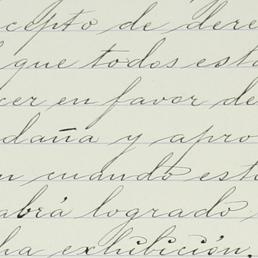 cepto de dere
que todos est
cer en favor de
daña y apro
n cuando est
abrá logrado
ha exhibición.